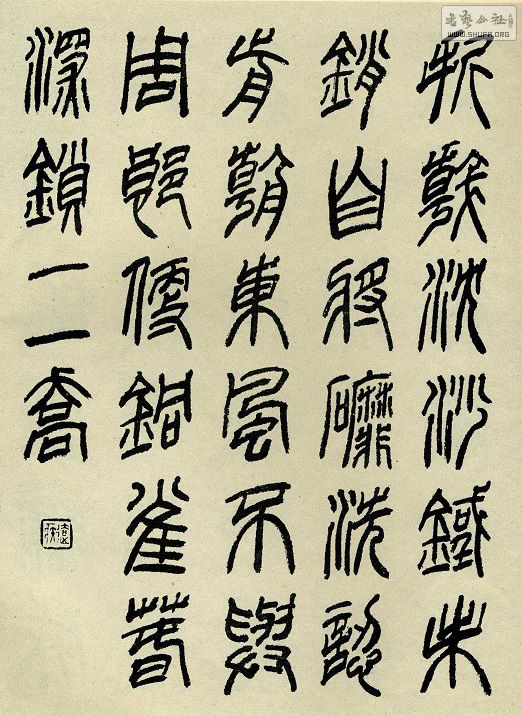 折戟沈沙鐵未
銷自將磨洗認
前朝東風不與
周郎便銅雀春
深鎖二喬
WWW.SHUFA.ORG